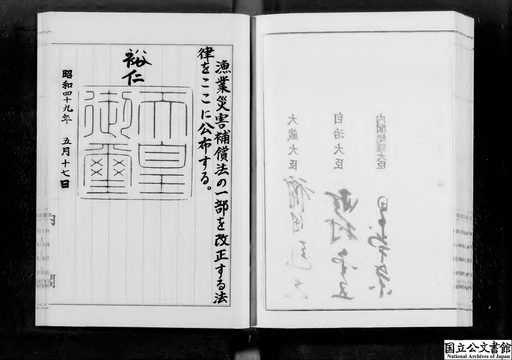 漁業災害補償法の一部を改正する法
律をここに公布する。
裕仁
天皇
御璽
昭和四十九年 五月十七日
内閣
内閣総理大臣
自治大臣
大蔵大臣
国立公文書館
National Archives of Japan